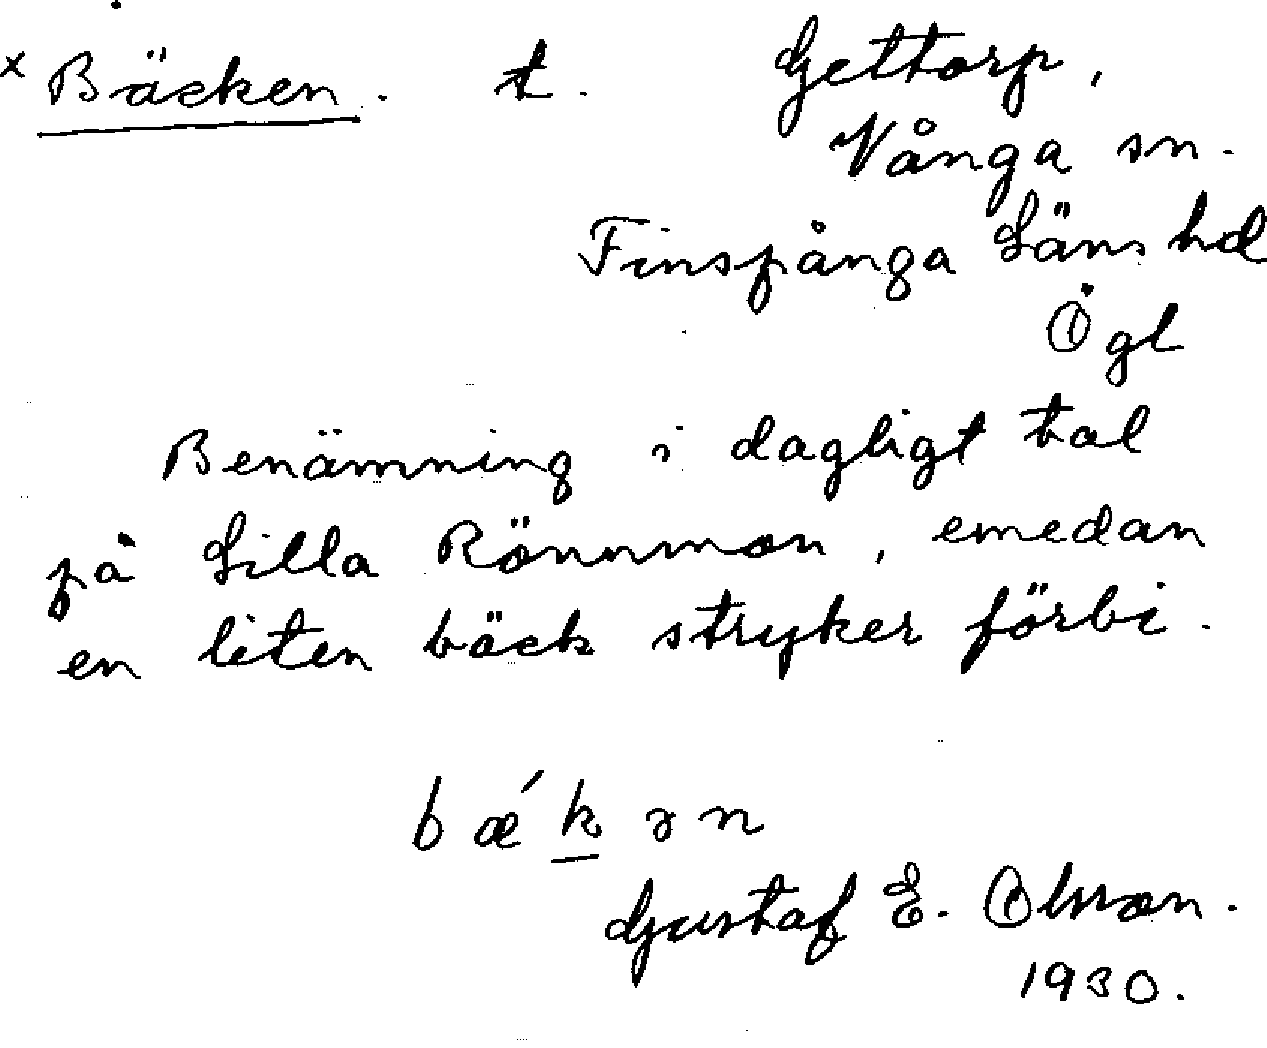 x Bäcken. t. Gettorp,
Vånga sn.
Finspånga Läns hd
Ögl
Benämning i dagligt tal
på Lilla Rönnmon, emedan
en liten bäck stryker förbi.
bǽkən
Gustaf E. Olsson.
1930.